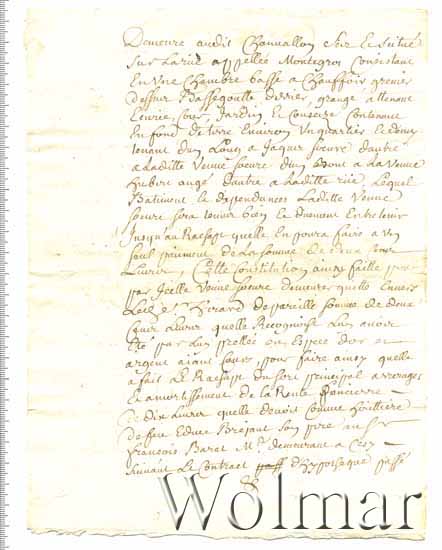 Demeure audit Chanvallon size et scitué
Sur la rue appellee Montegros Consistant
En une Chambre basse a Chauffoir grenier
dessus Bassegoutte derrier, grange attenant
Ecurie, Cour, Jardin, et Conscise Contenant
En fond de terre Environ un quartier et demy
tenant d'un Long a Jaques soeuré d'autre
a Laditte Veuve soeuré d'un bout a La Veuve
hubert augé d'autre a Laditte rüe, Lequel
Batiment et dependances Laditte Veuve
soeuré sera tenue bien et duement Entretenir
Jusqu'au Rachapt quelle En poura faire a un
seul paiement de La somme de deux Cent
Livres, Cette Constitution ainsy faitte
par Icelle Veuve soeuré demeurer quelle Envers
Ledit Gerard de pareille somme de deux
Cent Livres quelle Recognoist Luy avoir
Eté par Luy prestée en Espece d'or et
argent aiant Cours pour faire ainsy quelle
a fait Le Rachapt du sort principal arrerages
Et amortissement de La Rente fonciere
de dix Livres quelle devoit Comme heritiere
de feu Edme Brejaut son pere au Sr
François Barat Md. demeurant a Cezy
suivant Le Contract d'hypotheque passé
Wolmar